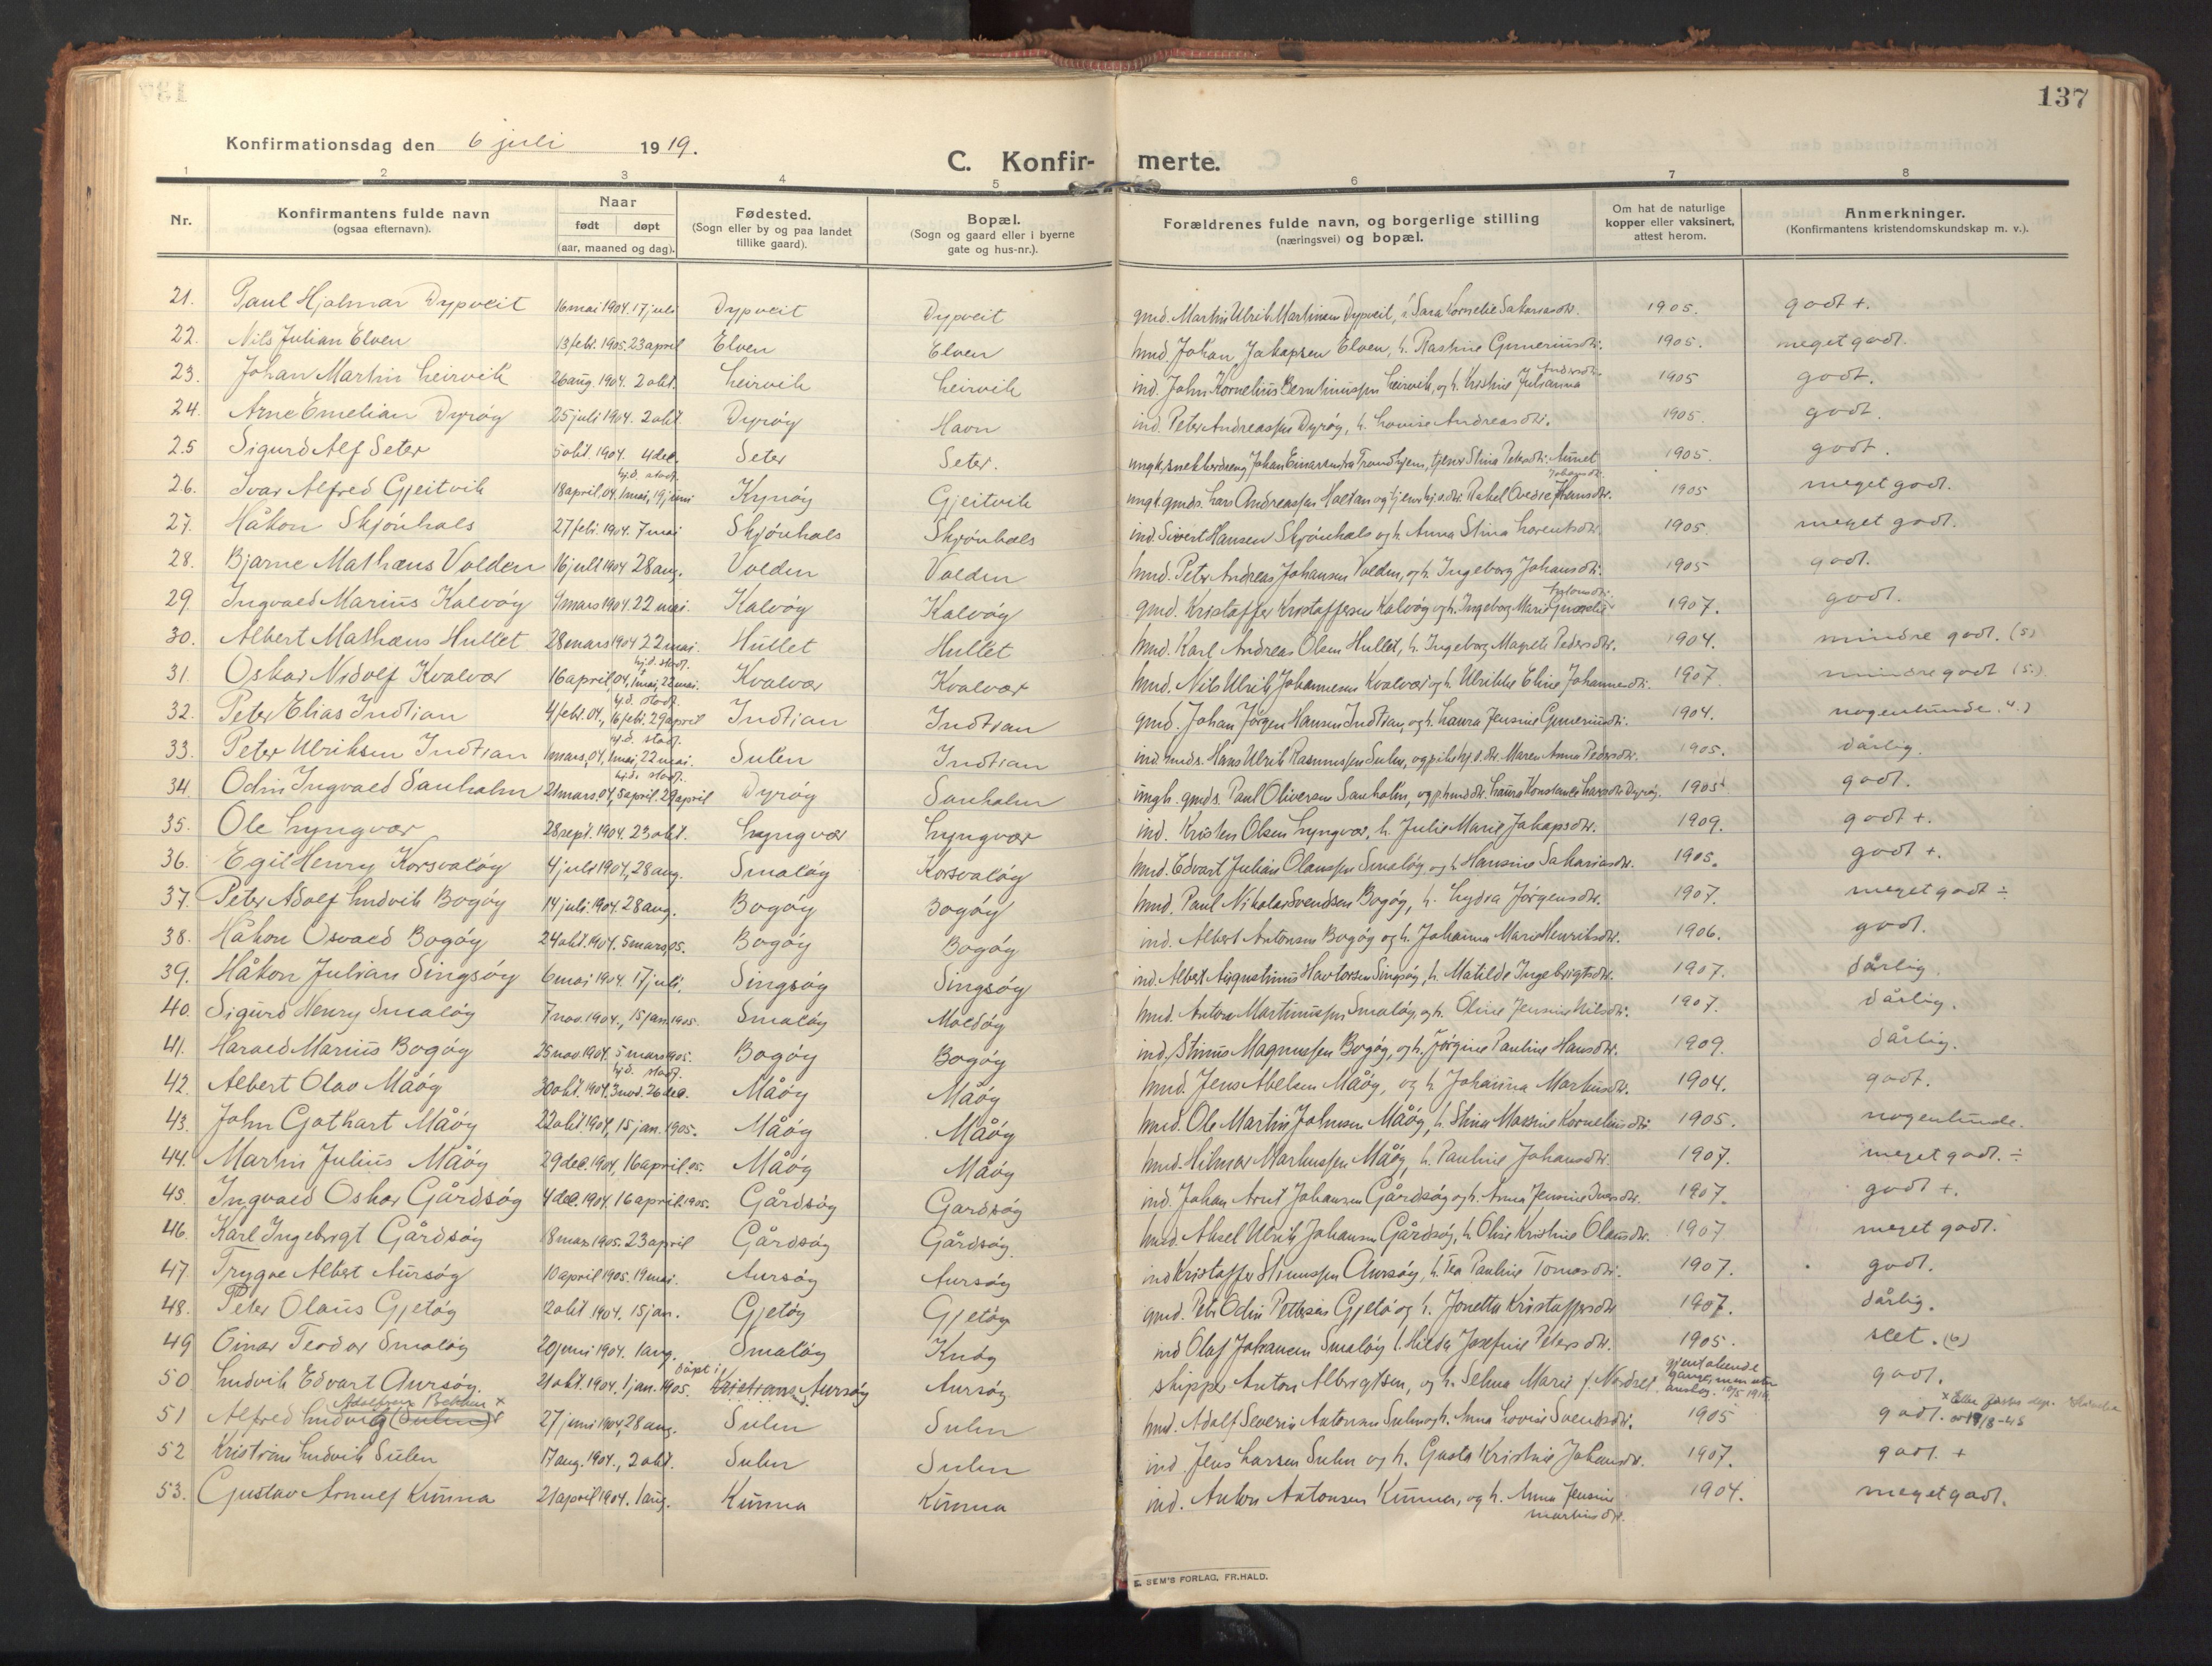 137
Konfirmationsdag den 6 juli 1919.
C. Konfir- merte.
1 2 3 4 5 6 7 8
Nr. Konfirmantens fulde navn (ogsaa efternavn). Naar født døpt (aar, maaned og dag). Fødested. (Sogn eller by og paa landet tillike gaard). Bopæl. (Sogn og gaard eller i byerne gate og hus-nr.). Forældrenes fulde navn, og borgerlige stilling (næringsvei) og bopæl. Om hat de naturlige kopper eller vaksinert, attest herom. Anmerkninger. (Konfirmantens kristendomskundskap m. v.).
21. Paul Hjalmar Dypveit 16 mai 1904. 17 juli Dypveit Dypveit gmd. Martin Ulrik Martinsen Dypveit, Sara Kornelie Sakariasdtr. 1905. godt +.
22. Nils Julian Elven 13 febr. 1905. 23 april Elven Elven hmd. Johan Jakapsen Elven, h. Rastine Guneriusdtr. 1905. meget godt.
23. Johan Martin Leirvik 26 aug. 1904. 2 okt. Leirvik Leirvik ind. John Kornelius Berntinussen Leirvik, og h. Kristine Julianna Andersdtr. 1905 godt.
24. Arne Emelian Dyrøy 25 juli 1904. 2 okt. Dyrøy Havn ind. Peter Andreassen Dyrøy, h. Lovise Andreasdtr. 1905. godt.
25 Sigurd Alf Seter 5 okt. 1904. 4 dec. Seter Seter. ungk. snekkerdreng Johan Einarsen fra Trondhjem, tjener Stina Petersdtr. Aunet 1905. godt.
26. Ivar Alfred Gjeitvik 18 april, 04, hj.d. stadf. 1 mai, 19 juni Kynøy Gjeitvik ungk. gmds. Lars Andreassen Haltan og tjener Rakel Ovedie Johansdtr. 1905 meget godt.
27. Håkon Skjønhals 27 feb. 1904. 7 mai Skjønhals Skjønhals ind. Sivert Hansen Skjønhals og h. Anna Stina Lorentsdtr. 1905 meget godt.
28. Bjarne Mathæus Valden 16 juli 1904 28 aug. Valden Valden hmd. Peter Andreas Johansen Valden, og h. Ingeborg Johansdtr. 1905 godt.
29. Ingvald Marius Kalvøy 9 mars 1904. 22 mai. Kalvøy Kalvøy gmd. Kristoffer Kristoffersen Kalvøy og h. Ingeborg Marie 1907. godt.
30. Albert Mathæus Hullet 28 mars 1904 22 mai. Hullet Hullet hmd. Karl Andreas Olsen Hullet, h. Ingeborg Magrete Pedersdtr. 1904. mindre godt. (5)
31. Oskar Nidolf Kvalvær 16 april, 04, hj.d. stadf. 1 mai, 22 mai. Kvalvær Kvalvær hmd. Nils Ulrik Johannesen Kvalvær og h. Ulrikke Eline Johannesdtr. 1907. mindre godt (5.)
32. Peter Elias Indtian 4 febr. 04, hj.d. stadf. 16 febr. 29 april Indtian Indtian gmd. Johan Jørgen Hansen Indtian, og h. Laura Jensine Guneriusdtr. 1904. nogenlunde.
33. Peter Ulriksen Indtian 1 mars, 04, hj.d. stadf. 1 mai, 22 mai. Sulen Indtian ind. gmds. Hans Ulrik Rasmussen Sulen, og pike Maren Anna Pedersdtr. 1905. dårlig.
34. Odin Ingvald Sanholm 21 mars. 04, hj.d. stadf. 5 april. 29 april Dyrøy Sanholm ungk. gmds. Paul Oliversen Sanholm, og Laura Konstanse Larsdtr. Dyrøy. 1905. godt.
35. Ole Lyngvær 28 sept. 1904. 23 okt. Lyngvær Lyngvær ind. Kristen Olsen Lyngvær, h. Julie Marie Jakapsdtr. 1909. godt +.
36. Egil Henry Korsvaløy 4 juli 1904, 28 aug. Smaløy Korsvaløy hmd. Edvart Julian Olaussen Smaløy og h. Hansine Sakariasdtr. 1905. godt +.
37. Peter Adolf Ludvik Bogøy 14 juli 1904. 28 aug. Bogøy Bogøy hmd. Paul Nikolai Svendsen Bogøy, h. Lydia Jørgensdtr. 1907. meget godt ÷
38. Håkon Osvald Bogøy 24 okt. 1904. 5 mars, 05. Bogøy Bogøy ind. Albert Antonsen Bogøy og h. Johanna Marie Henriksdtr. 1906. godt.
39. Håkon Julian Singsøy 6 mai 1904. 17 juli. Singsøy Singsøy ind. Albert Augustinus Havtorsen Singsøy, h. Matilde Ingebrigtsdtr. 1907. dårlig.
40. Sigurd Henry Smaløy 7 nov. 1904., 15 jan. 1905. Smaløy Moldøy hmd. Anton Martinussen Smaløy, og h. Oline Jensine Nilsdtr. 1907. dårlig.
41. Harald Marius Bogøy 25 nov 1904. 5 mars 1905. Bogøy Bogøy ind. Stinus Magnussen Bogøy, og h. Jørgine Pauline Hansdtr. 1909. dårlig.
42. Albert Olav Måøy 30 okt. 1904. hj.d. stadf. 3 nov. 26 dec. Måøy Måøy hmd. Jens Abelsen Måøy, og h. Johanna Markusdtr. 1904. godt.
43. John Gothart Måøy 22 okt. 1904, 15 jan. 1905. Måøy Måøy hmd. Ole Martin Johnsen Måøy, h. Stina Maksine Korneliusdtr. 1905. nogenlunde.
44. Martin Julius Måøy 29 dec. 1904, 16 april. 05. Måøy Måøy hmd. Hilmar Markussen Måøy, h. Pauline Johansdtr. 1907. meget godt. ÷
45. Ingvald Oskar Gårdsøy 4 dec. 1904. 16 april. 1905. Gårdsøy Gardsøy ind. Johan Arnt Johansen Gårdsøy og h. Anna Jensine Iversdtr. 1907. godt +.
46. Karl Ingebrigt Gårdsøy 18 mars 1905. 23 april Gårdsøy Gårdsøy. hmd. Aksel Ulrik Johansen Gårdsøy, h. Oline Kristine Olausdtr. 1907 meget godt.
47. Trygve Albert Aursøy 10 april 1905. 19 mai. Aursøy Aursøy ind Kristoffer Stinussen Aursøy, h. Tea Pauline Tomasdtr. 1907. godt.
48. Peter Olaus Gjetøy 2 okt. 1904. 15 jan. Gjetøy Gjetøy gmd. Petr. Odin Pettersen Gjetø og h. Jonetta Kristoffersdtr. 1907. dårlig.
49 Einar Teodor Smaløy 20 juni 1904. 1 aug. Smaløy Knøy ind Olaf Johansen Smaløy h. Hilda Josefine Petersdtr. 1905. slet. (6)
50 Ludvik Edvart Aursøy. 21 okt. 1904. 1 jan. 1905. døpt i Kristians. Aursøy Aursøy skipper Anton Albrigtsen, og h. Selma Marie f. Nordsel. gjentakende gange, men uten anslag. 10/5 1919. godt.
51 Alfred Ludvig (Sulen) Adolfsen Bekken x 27 juni 1904, 28 aug. Sulen Sulen hmd. Adolf Severin Antonsen Sulen og h. Anna Lovise Svendsdtr. 1905 godt. x Etter Justis dep. av 17/8-45
52 Kristian Ludvik Sulen 17 aug. 1904., 2 okt. Sulen Sulen ind. Jens Larsen Sulen og h. Gusta Kristine Johansdtr. 1907. godt. +
53. Gustav Arnulf Kunna 21 april 1904. 1 aug. Kunna Kunna ind. Anton Antonsen Kunna, og h. Anna Jensine Martinsdtr. 1904. meget godt.
E. SEM'S FORLAG, FR.HALD.